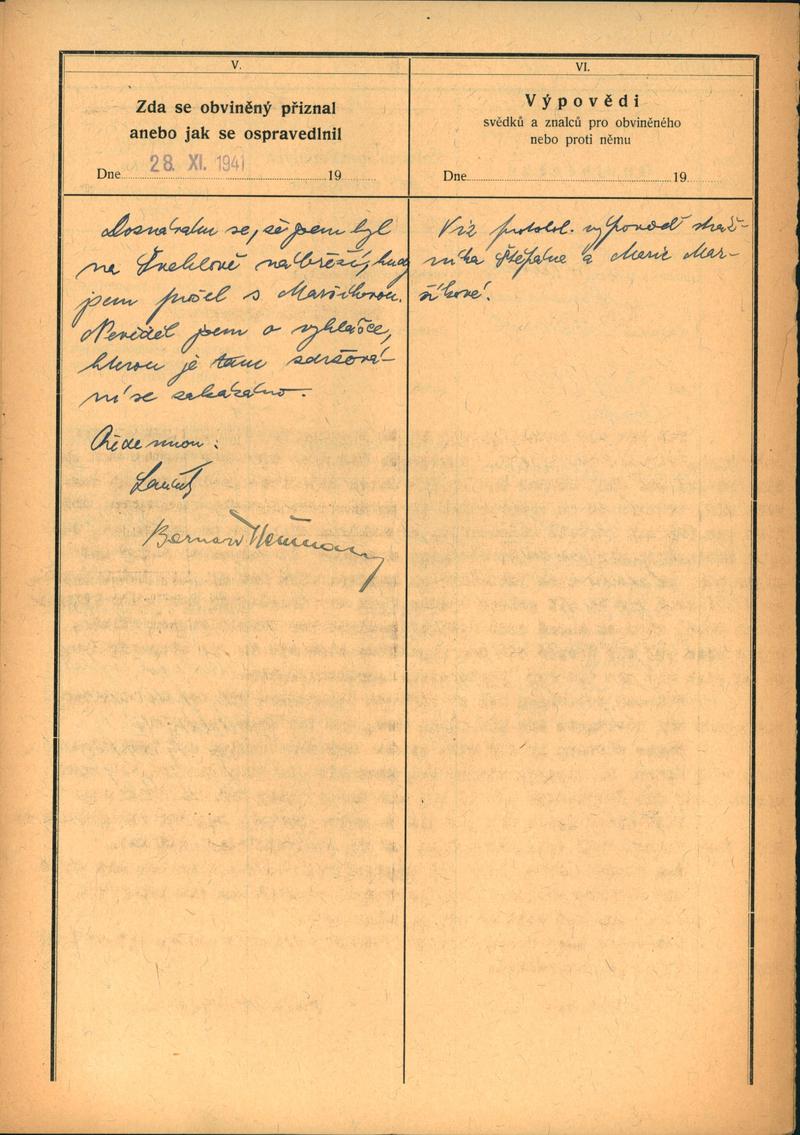 V.
Zda se obviněný přiznal
anebo jak se ospravedlnil
Dne 28. XI. 1941 19
Doznávám se, že jsem byl
na Švehlově nábřeží, kudy
jsem prošel s Maršíkovou.
Nevěděl jsem o vyhlášce,
kterou je tam zdržová-
ní se zakázáno.
Přede mnou:
Bernard Neumann
VI.
Výpovědi
svědků a znalců pro obviněného
nebo proti němu
Dne 19
Viz protokol. výpověď stráž-
níka Štěpána a Marie Mar-
šíkové.